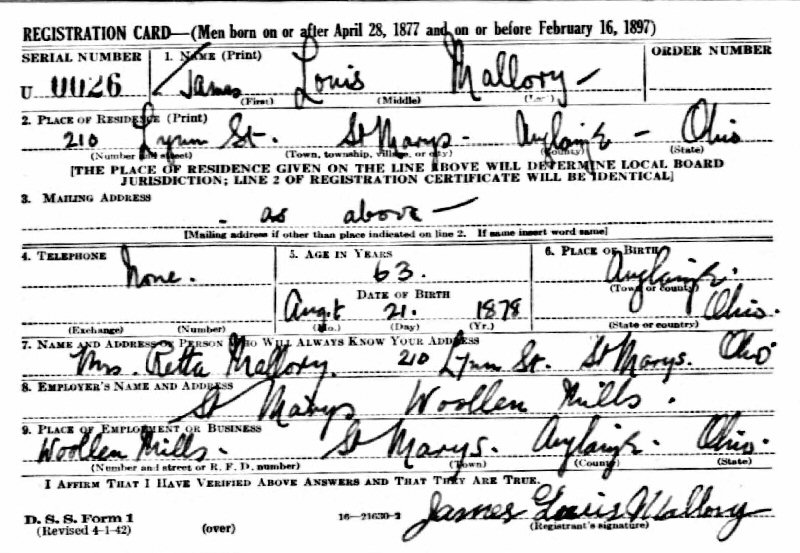 REGISTRATION CARD—(Men born on or after April 28, 1877 and on or before February 16, 1897)
SERIAL NUMBER 1. NAME (Print) ORDER NUMBER
U 0026 James Louis Mallory
(First) (Middle) (Last)
2. PLACE OF RESIDENCE (Print)
210 Lynn St. St Marys - Auglaize - Ohio
(Number and street) (Town, township, village, or city) (County) (State)
[THE PLACE OF RESIDENCE GIVEN ON THE LINE ABOVE WILL DETERMINE LOCAL BOARD
JURISDICTION; LINE 2 OF REGISTRATION CERTIFICATE WILL BE IDENTICAL]
3. MAILING ADDRESS
- as above -
[Mailing address if other than place indicated on line 2. If same insert word same]
4. TELEPHONE 5. AGE IN YEARS 6. PLACE OF BIRTH
None. 63. Auglaize.
DATE OF BIRTH (Town or county)
Aug.t 21. 1878 Ohio.
(Exchange) (Number) (Mo.) (Day) (Yr.) (State or country)
7. NAME AND ADDRESS OF PERSON WHO WILL ALWAYS KNOW YOUR ADDRESS
Mrs. Retta Mallory. 210 Lynn St. St Marys. Ohio
8. EMPLOYER'S NAME AND ADDRESS
St Marys Woollen Mills.
9. PLACE OF EMPLOYMENT OR BUSINESS
Woollen Mills. St Marys. Auglaize. Ohio.
(Number and street or R. F. D. number) (Town) (County) (State)
I AFFIRM THAT I HAVE VERIFIED ABOVE ANSWERS AND THAT THEY ARE TRUE.
D. S. S. Form 1
(Revised 4-1-42) (over) 16—21630-2 James Louis Mallory
(Registrant's signature)